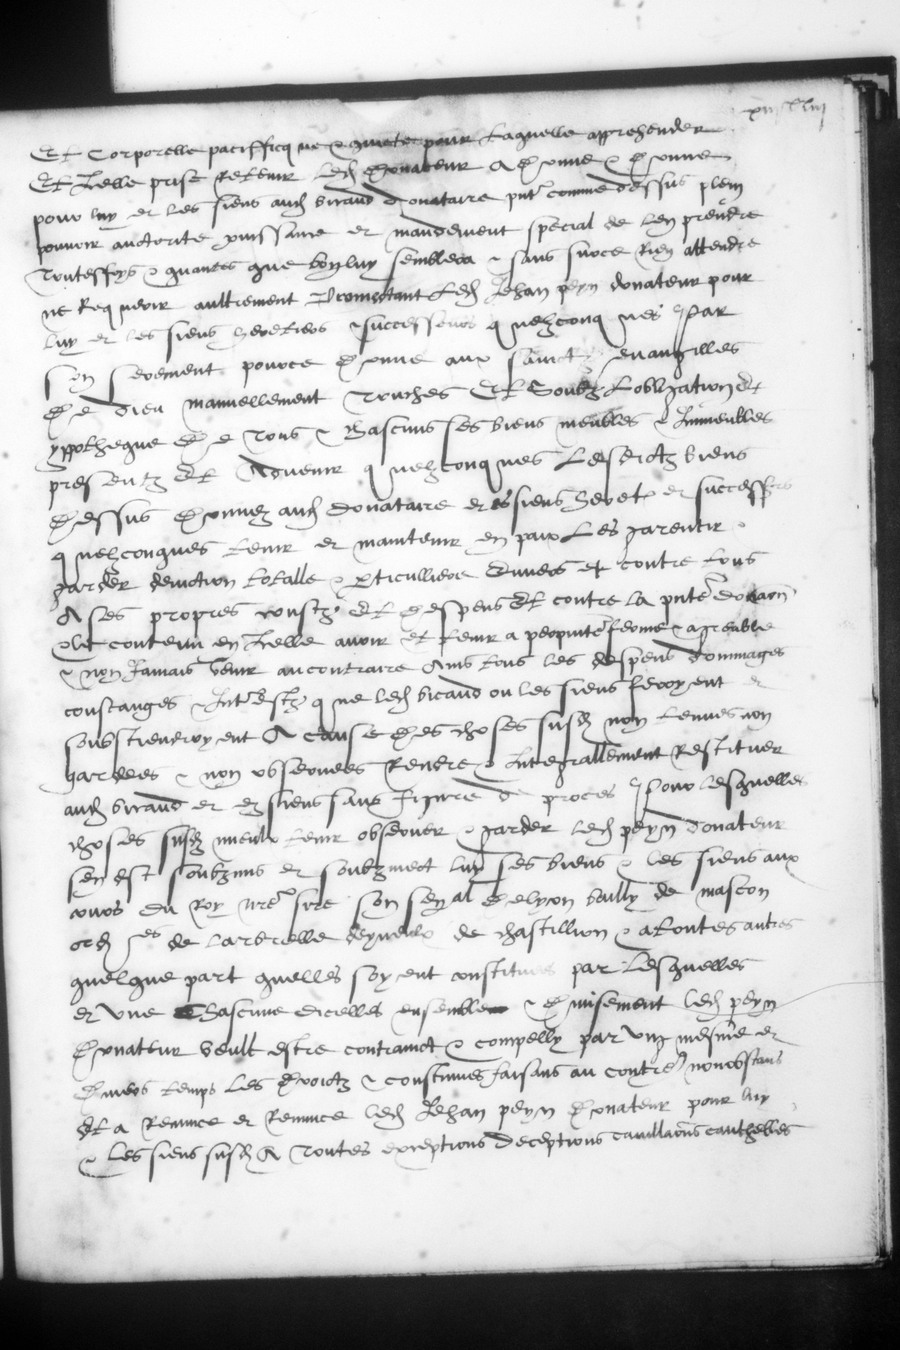 Et Corporelle paciffique & quiete pour laquelle apprehender
Et Icelle prise Retenir led donateur A donne & donne
pour luy et les siens aud biraud donataire pnt comme dessus plein
pouvoir auctorite puissance et mandement special de len prendre
Touteffoys & quantes que bon luy semblera & sans sur ce Rien attendre
ne Requerir aultrement Promectant led Jehan peyn donateur pour
luy et les siens heretiers & successeurs quelzconques Par
son serement pource donne aux sainctz evangilles
De dieu manuellement Touches Et Soubz Lobligation Et
yppotheque De Tous & Chascuns ses biens meubles & Immeubles
presentz Et Advenir quelzconques Lesdictz biens
Dessus Donnez aud donataire et es siens heret et success
quelzconques tenir et maintenir en paix Les garentir
garder deviction totalle & perticulliere Envers et contre tous
A ses propres coustz Et despens Et contre la pnte donaon
contenu en Icelle avoir et tenir a perpetuite ferme & agreable
& non Jamais venir au contraire Ains tous les despens dommages
constanges & Interestz que led biraud ou les siens feroyent et
soubstiendroyent A cause des choses susd non tenues non
gardees & non observees Rendre & Integrallement Restituer
aud biraud et es siens sans figure de proces Pour lesquelles
choses susd mieulx tenir observer & garder led peyn donateur
sen est soubzmis et soubzmect luy ses biens & les siens aux
cours du Roy nre sire son seal de lyon bailly de mascon
de larbrelle de chastillion & a toutes autres
quelque part quelles soyent constituees par Lesquelles
et une Chascune dicelles ensemble & divisement led peyn
Donateur veult estre contrainct & compelly par ung mesme et
Divers temps les droictz & coustumes faisans au contre nonobstans
Et a Renunce et Renunce led Jehan peyn Donateur pour luy
& les siens susd A Toutes exceptions deceptions cavillaons cauthelles